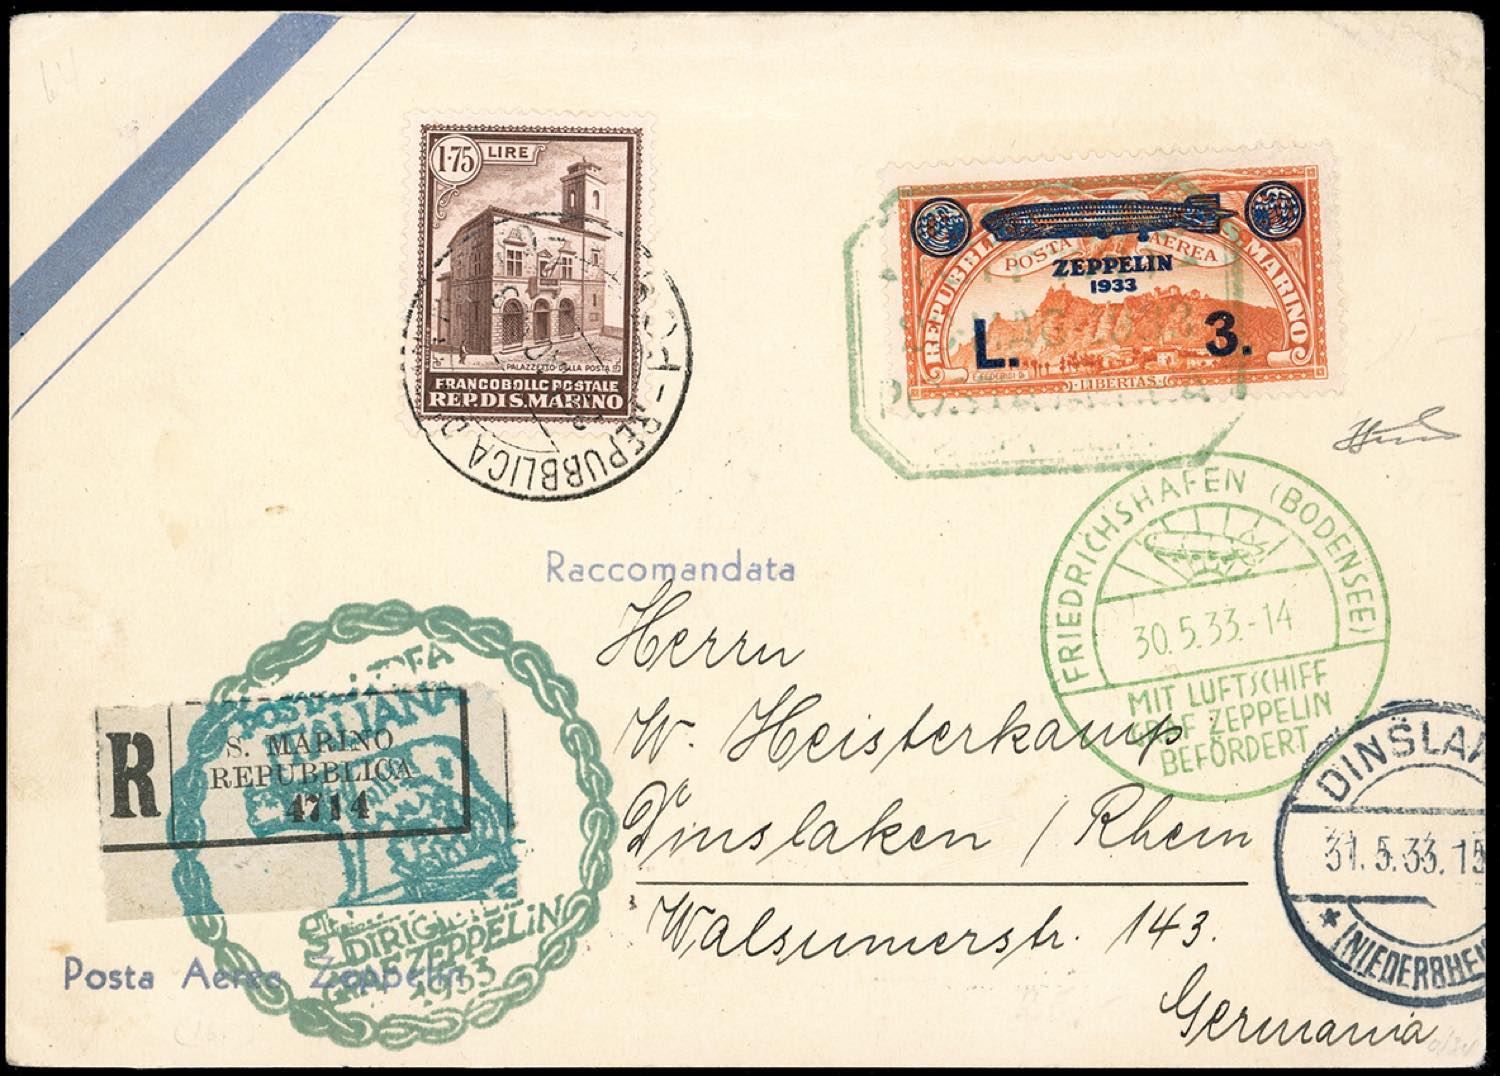 1·75 LIRE
PALAZZETTO DELLA POSTA
FRANCOBOLLO POSTALE
REP. DI S. MARINO
REPUBBLICA
REPUBBLICA S. MARINO
POSTA AEREA
ZEPPELIN
1933
L. 3.
LIBERTAS
FRIEDRICHSHAFEN (BODENSEE)
30.5.33.-14
MIT LUFTSCHIFF
GRAF ZEPPELIN
BEFÖRDERT
Raccomandata
Herrn
W. Heisterkamp
Dinslaken / Rhein
Walsumerstr. 143.
Germania
R
S. MARINO
REPUBBLICA
4714
POSTA AEREA
ITALIANA
DIRIGIBILE
GRAF ZEPPELIN
1933
Posta Aerea Zeppelin
DINSLAK
31.5.33.15
* (NIEDERRHEI